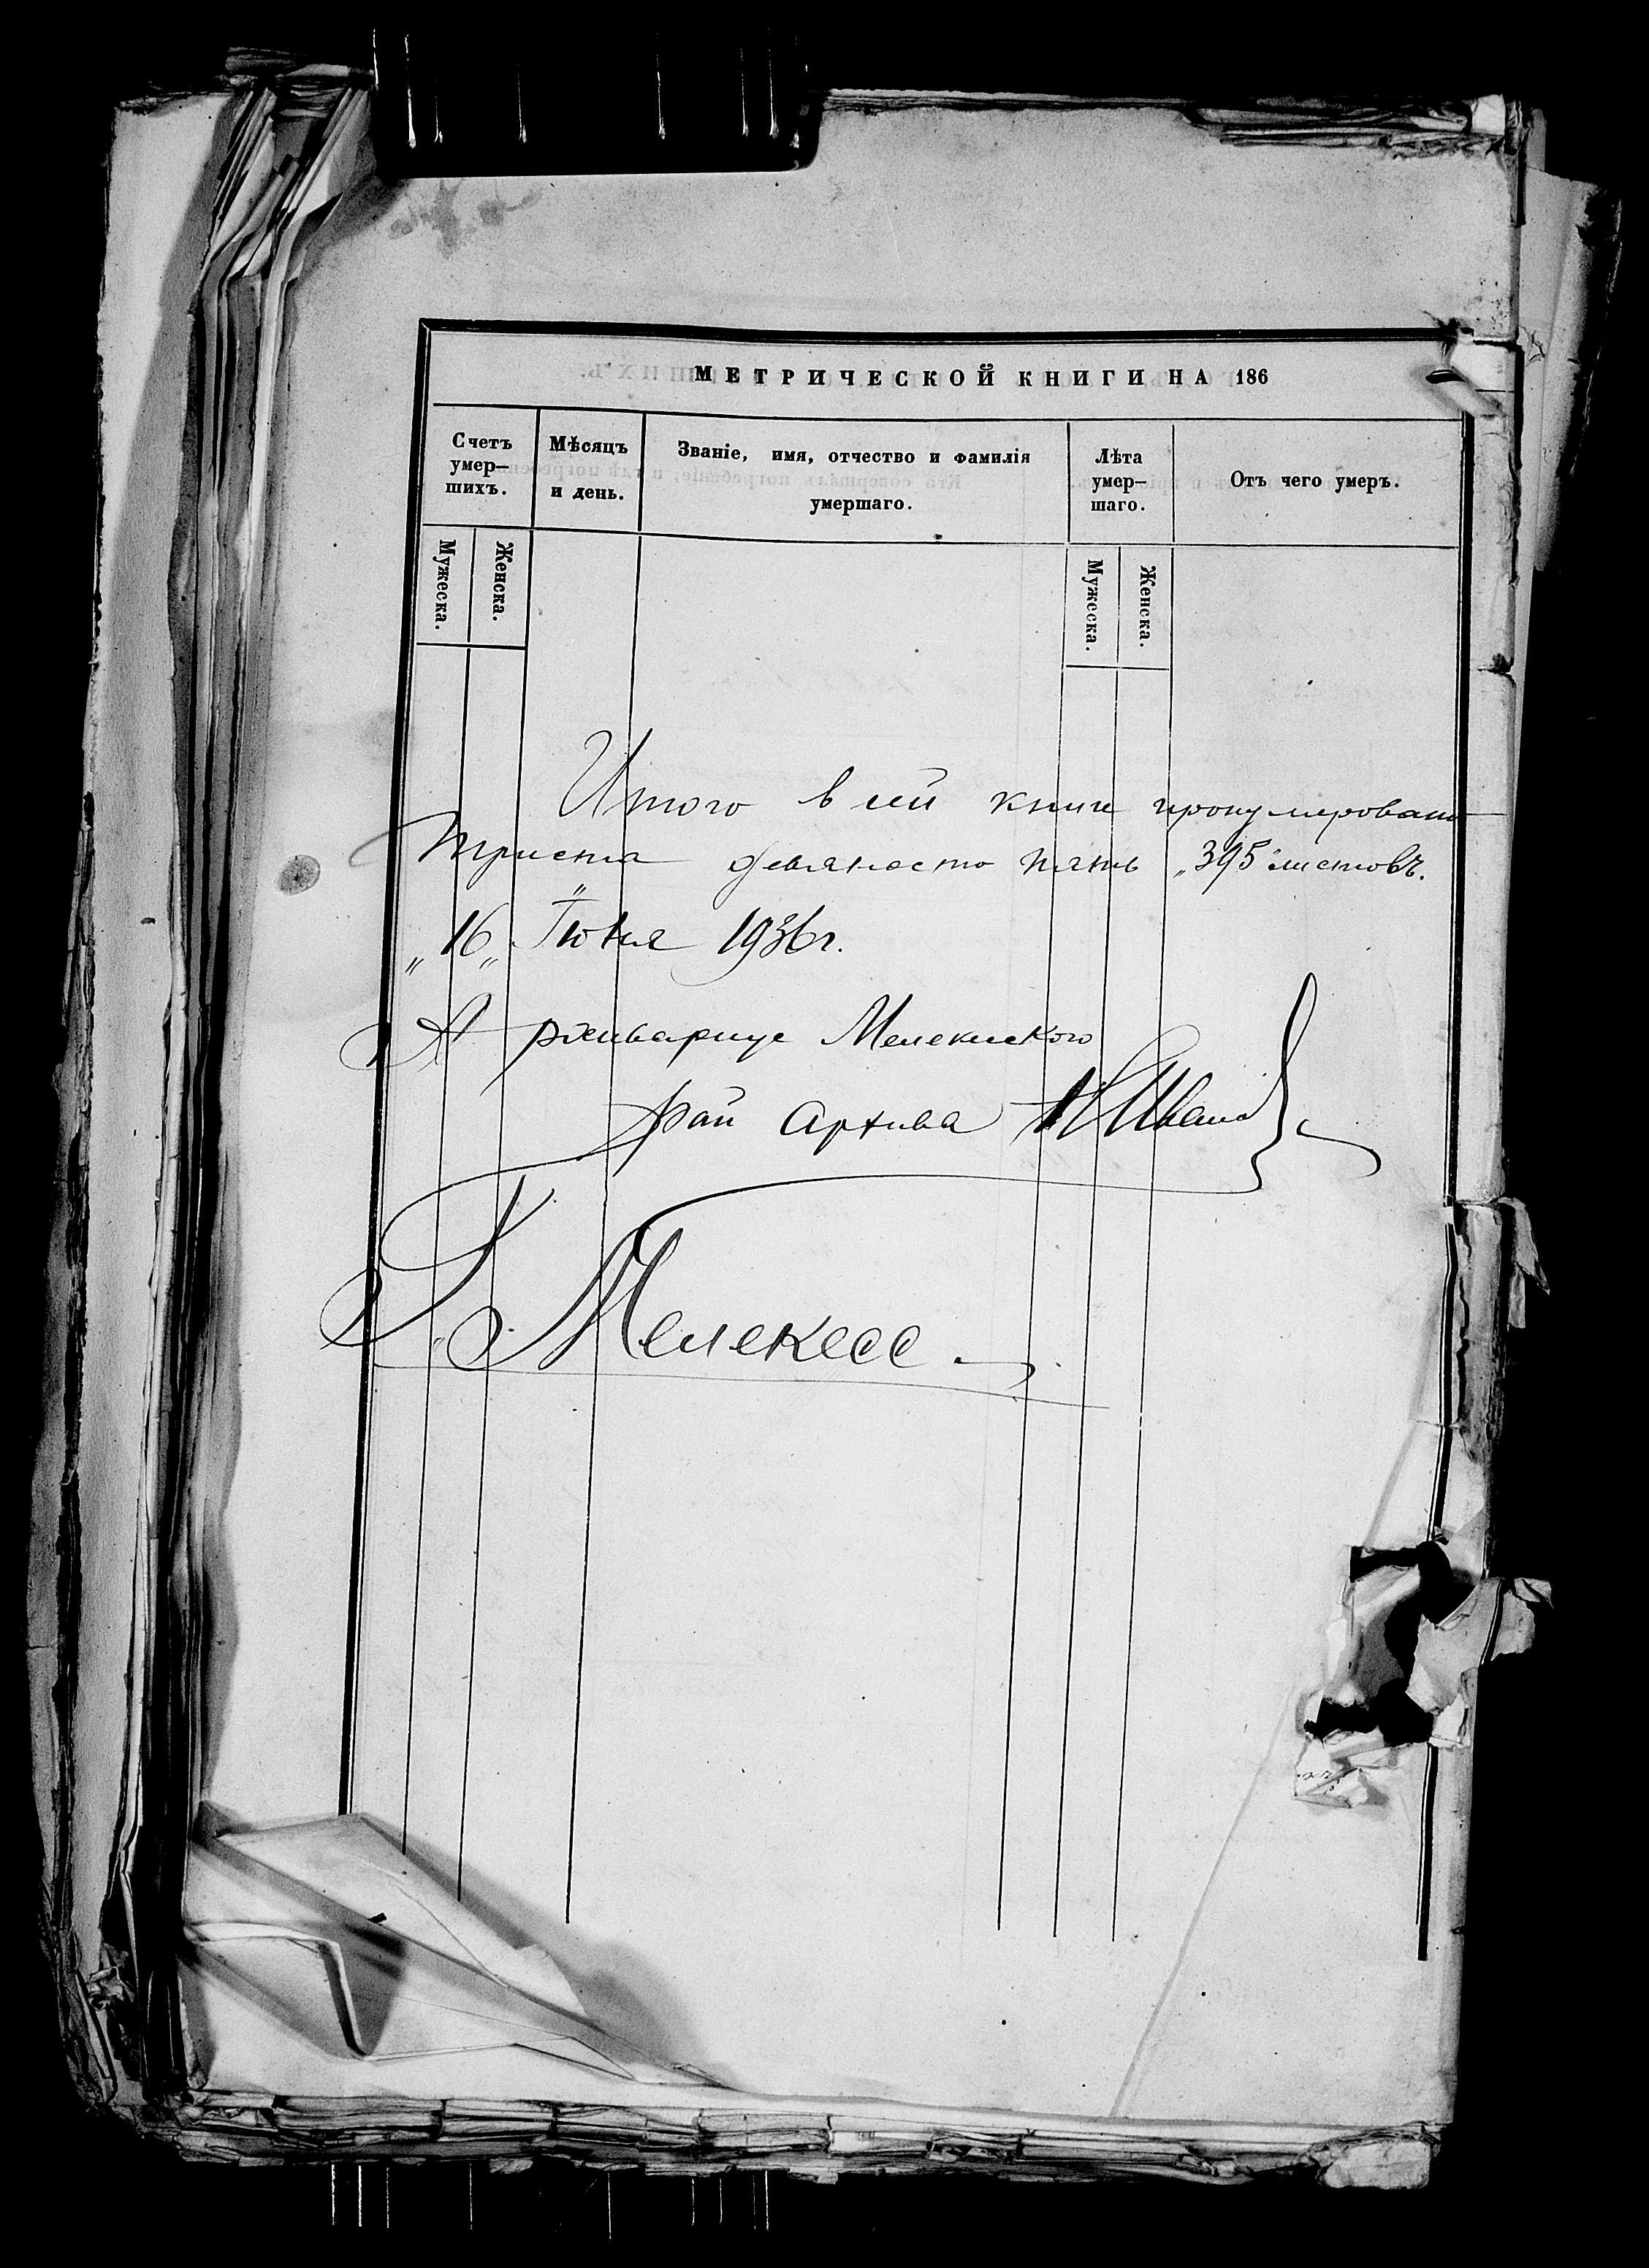 МЕТРИЧЕСКОЙ КНИГИ НА 186
Счетъ умер—шихъ.
Мѣсяцъ и день.
Званіе, имя, отчество и фамилія умершаго.
Лѣта умер—шаго.
Отъ чего умеръ.
Мужеска.
Женска.
Мужеска.
Женска.
Итого в сей книге пронумеровано
триста девяносто пять „395" листовъ.
„16„ Июня 1936 г.
Архивариус Мелекесского
рай архива
Г. Мелекесс